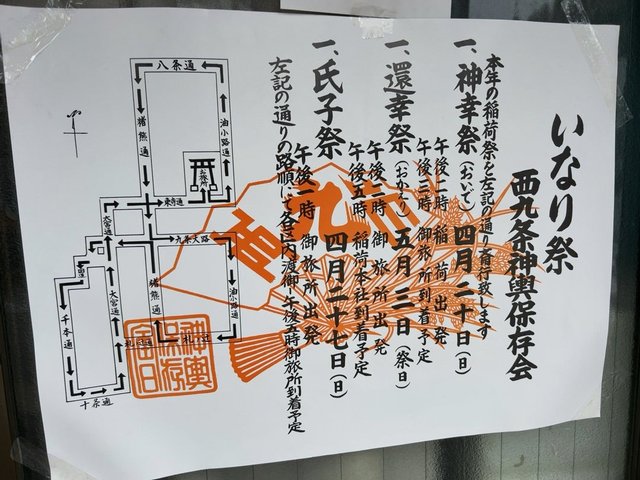 いなり祭
西九条神輿保存会
本年の稲荷祭を左記の通り斎行致します
一、神幸祭（おいで）四月二十日（日）
午後一時 稲荷出発
午後三時 御旅所到着予定
一、還幸祭（おかえり）五月三日（祭日）
午後一時 御旅所出発
午後五時 稲荷本社到着予定
一、氏子祭 四月二十七日（日）
午後一時 御旅所出発
左記の通りの路順にて各区内渡御、午後五時御旅所到着予定
八条通
猪熊通
油小路通
御旅所
東寺通
大宮通
九条大路
猪熊通
油小路通
大宮通
千本通
札ノ辻通
十条通
西九条
神輿
保存
会印